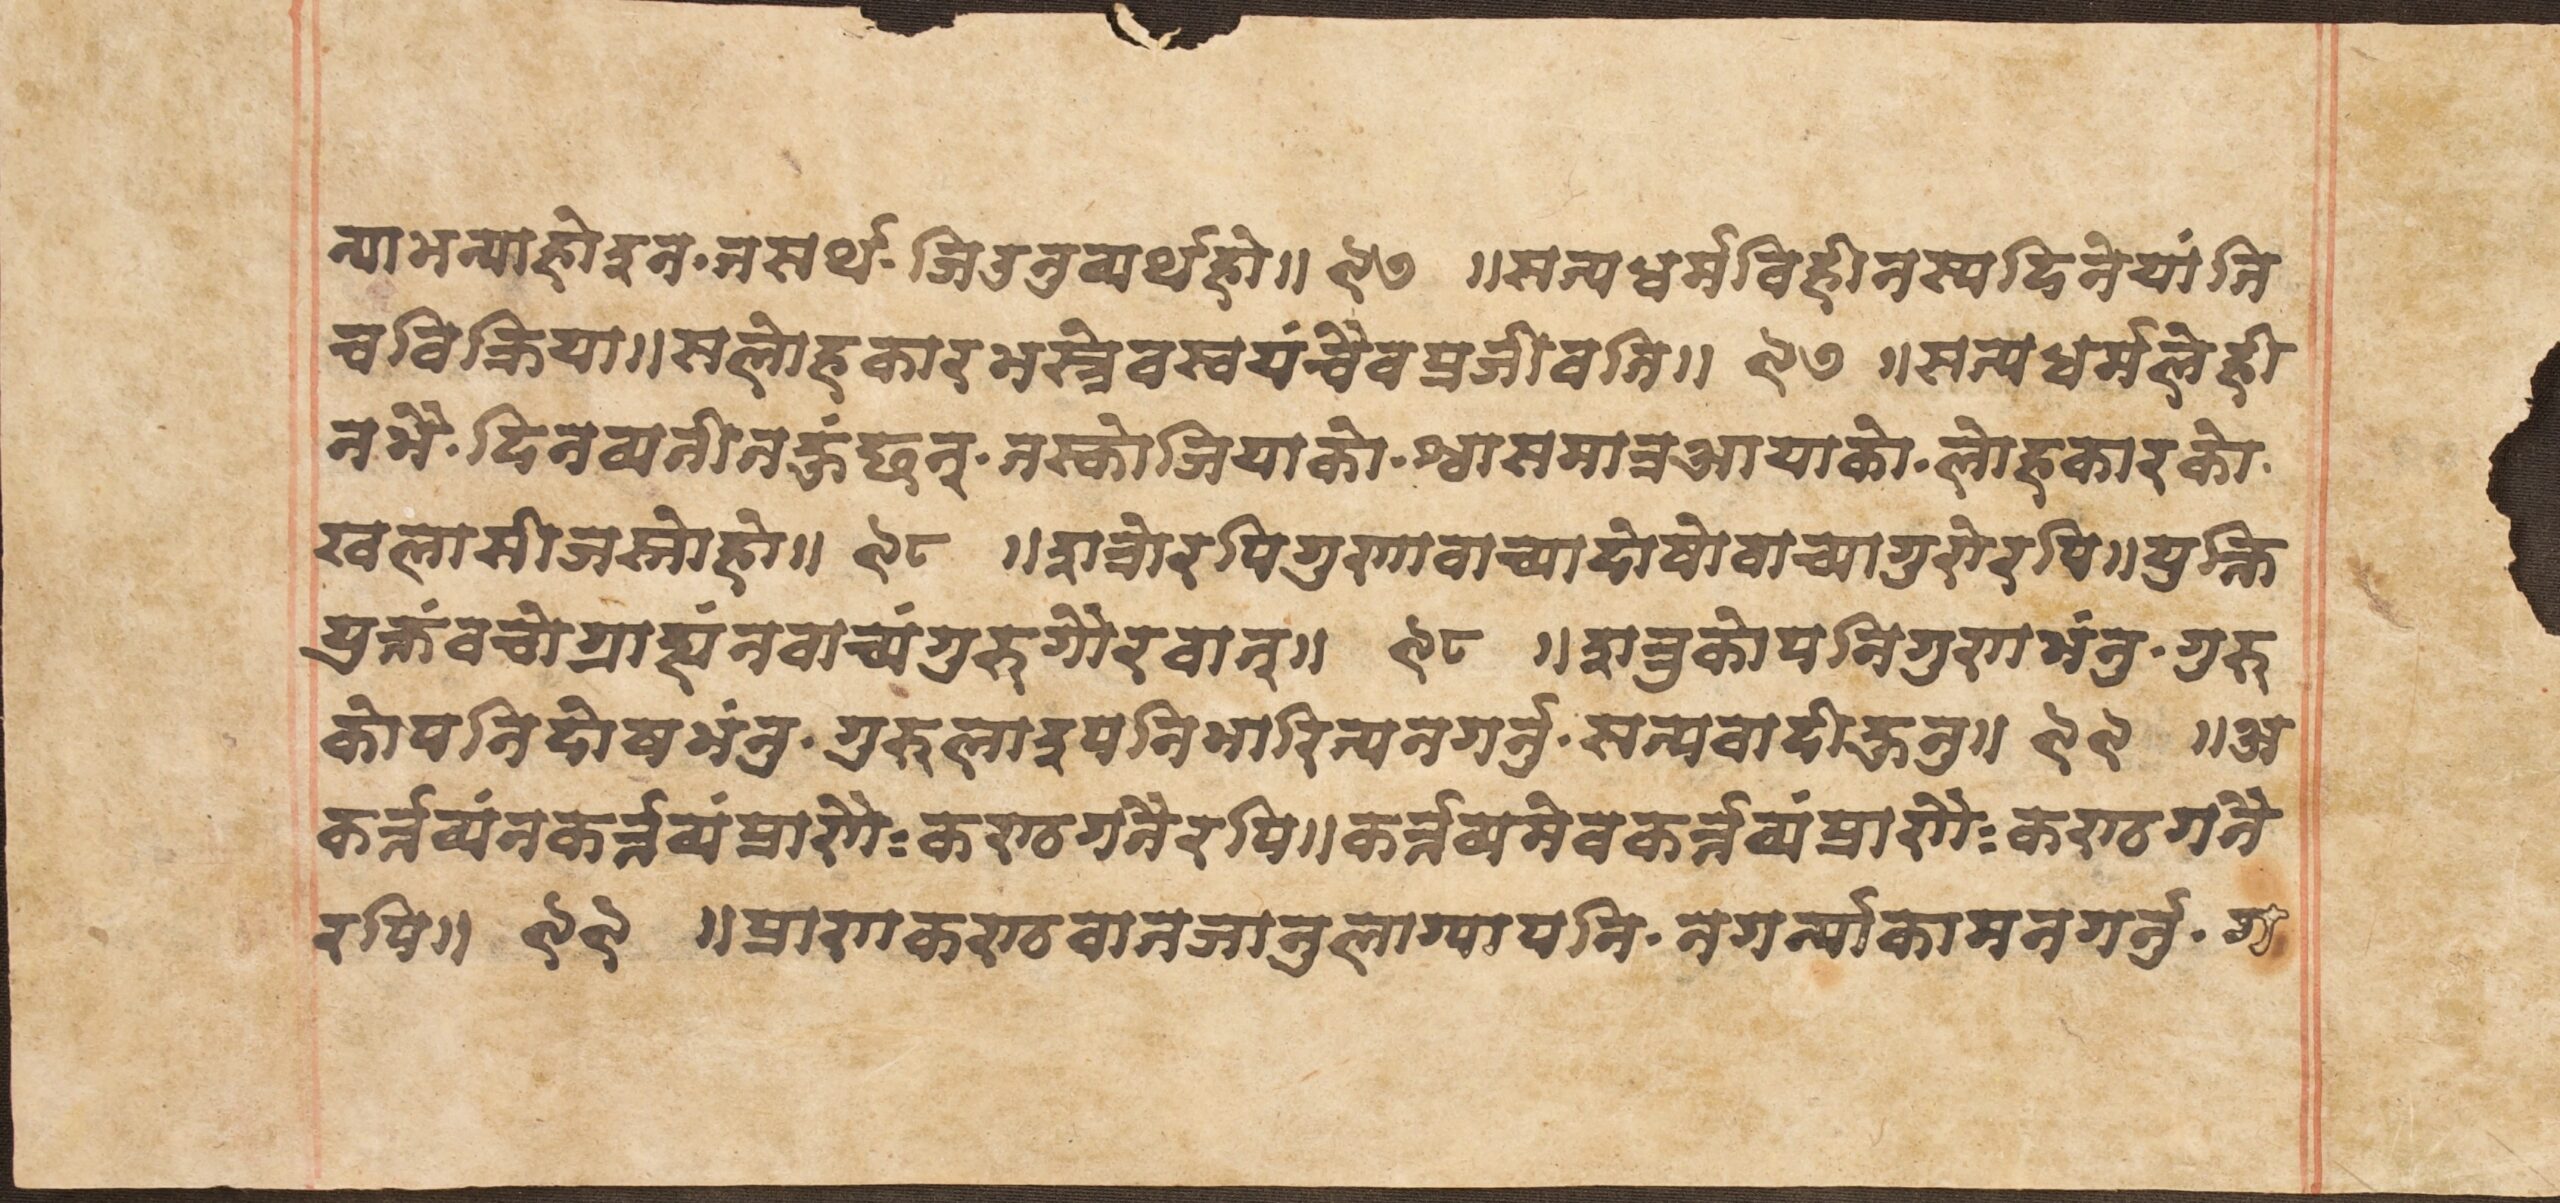 त्याभत्याहोइन॰तसर्थ-जिउनुव्यर्थहो॥ ९७ ॥सत्यधर्मविहीनस्यदिनेयांति
चविक्रिया॥सलोहकारभस्त्रेवस्वयंच्चैवप्रजीवति॥ ९७ ॥सत्यधर्मलेही
नभै॰दिनव्यतीतक्तंछन्॰तस्कोजियाको॰श्वासमात्रआयाको॰लोहकारको॰
खलामीजस्तोहो॥ ९८ ॥शत्रोरपिगुणावाच्यादोषोवाच्यागुरोरपि॥युक्ति
युक्तंवचोग्राह्यंनवाच्यंगुरुगौरवात्॥ ९८ ॥शत्रुकोपनिगुणभंनु॰गुरु
कोपनिदोषभंनु॰गुरुलाइपनिभारित्यनगर्नु॰सत्यवादीक्तनु॥ ९९ ॥अ
कर्त्तव्यंनकर्त्तव्यंप्राणैःकण्ठगतैरपि॥कर्त्तव्यमेवकर्त्तव्यंप्राणैःकण्ठगतै
रपि॥ ९९ ॥प्राणकण्ठवातजानुलाग्यापनि॰नगर्न्याकामनगर्नु॰ग